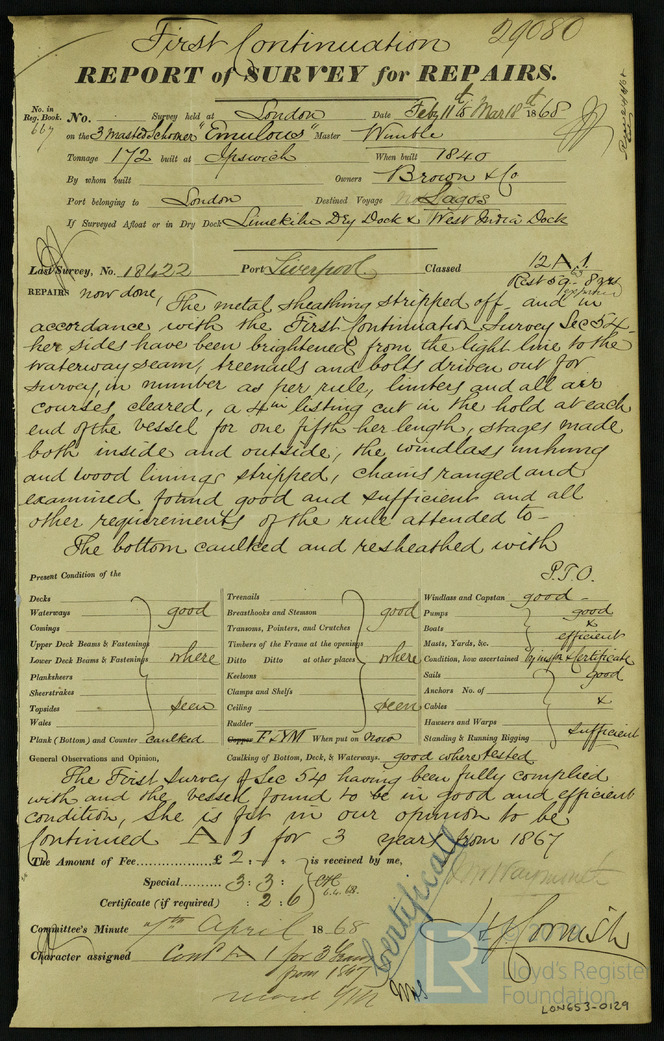 First Continuation 29080
REPORT of SURVEY for REPAIRS.
No. in
Reg. Book.
667
No. Survey held at London Date Feby 11th to Mar 18th 1868
on the 3 masted Schooner "Emulous" Master Wimble
Tonnage 172 built at Ipswich When built 1840
By whom built Owners Brown & Co
Port belonging to London Destined Voyage Lagos
If Surveyed Afloat or in Dry Dock Limekiln Dry Dock & West India Dock
Last Survey, No. 18422 Port Liverpool Classed 12 A 1
Rest 59 - 8 yrs
REPAIRS now done, The metal sheathing stripped off and in
accordance with the First Continuation Survey Sec 54
her sides have been brightened from the light line to the
waterway seam, treenails and bolts driven out for
survey, in number as per rule, limbers and all air
courses cleared, a 4in listing cut in the hold at each
end of the vessel for one fifth her length, stages made
both inside and outside, the windlass unhung
and wood linings stripped, chains ranged and
examined found good and sufficient and all
other requirements of the rule attended to -
The bottom caulked and resheathed with
P.T.O.
Present Condition of the
Decks
Waterways good
Comings
Upper Deck Beams & Fastenings
Lower Deck Beams & Fastenings where
Planksheers
Sheerstrakes
Topsides seen
Wales
Plank (Bottom) and Counter caulked
Treenails
Breasthooks and Stemson good
Transoms, Pointers, and Crutches
Timbers of the Frame at the openings
Ditto Ditto at other places where
Keelsons
Clamps and Shelfs
Ceiling seen
Rudder
Copper F & YM When put on now
Windlass and Capstan good -
Pumps good
Boats &
Masts, Yards, &c. efficient
Condition, how ascertained by insp & Certificate
Sails good
Anchors No. of
Cables &
Hawsers and Warps
Standing & Running Rigging sufficient
General Observations and Opinion, Caulking of Bottom, Deck, & Waterways. good where tested
The First Survey of Sec 54 having been fully complied
with and the vessel found to be in good and efficient
condition, She is fit in our opinion to be
Continued A 1 for 3 years from 1867
The Amount of Fee £ 2 : - : - is received by me,
Special 3 : 3 :
Certificate (if required) : 2 : 6
6.4.68.
Certificate
Committee's Minute 7th April 1868
Character assigned Contd A 1 for 3 Years
from 1867
H J Cornish
LR
Lloyd's Register
Foundation
LON653-0129